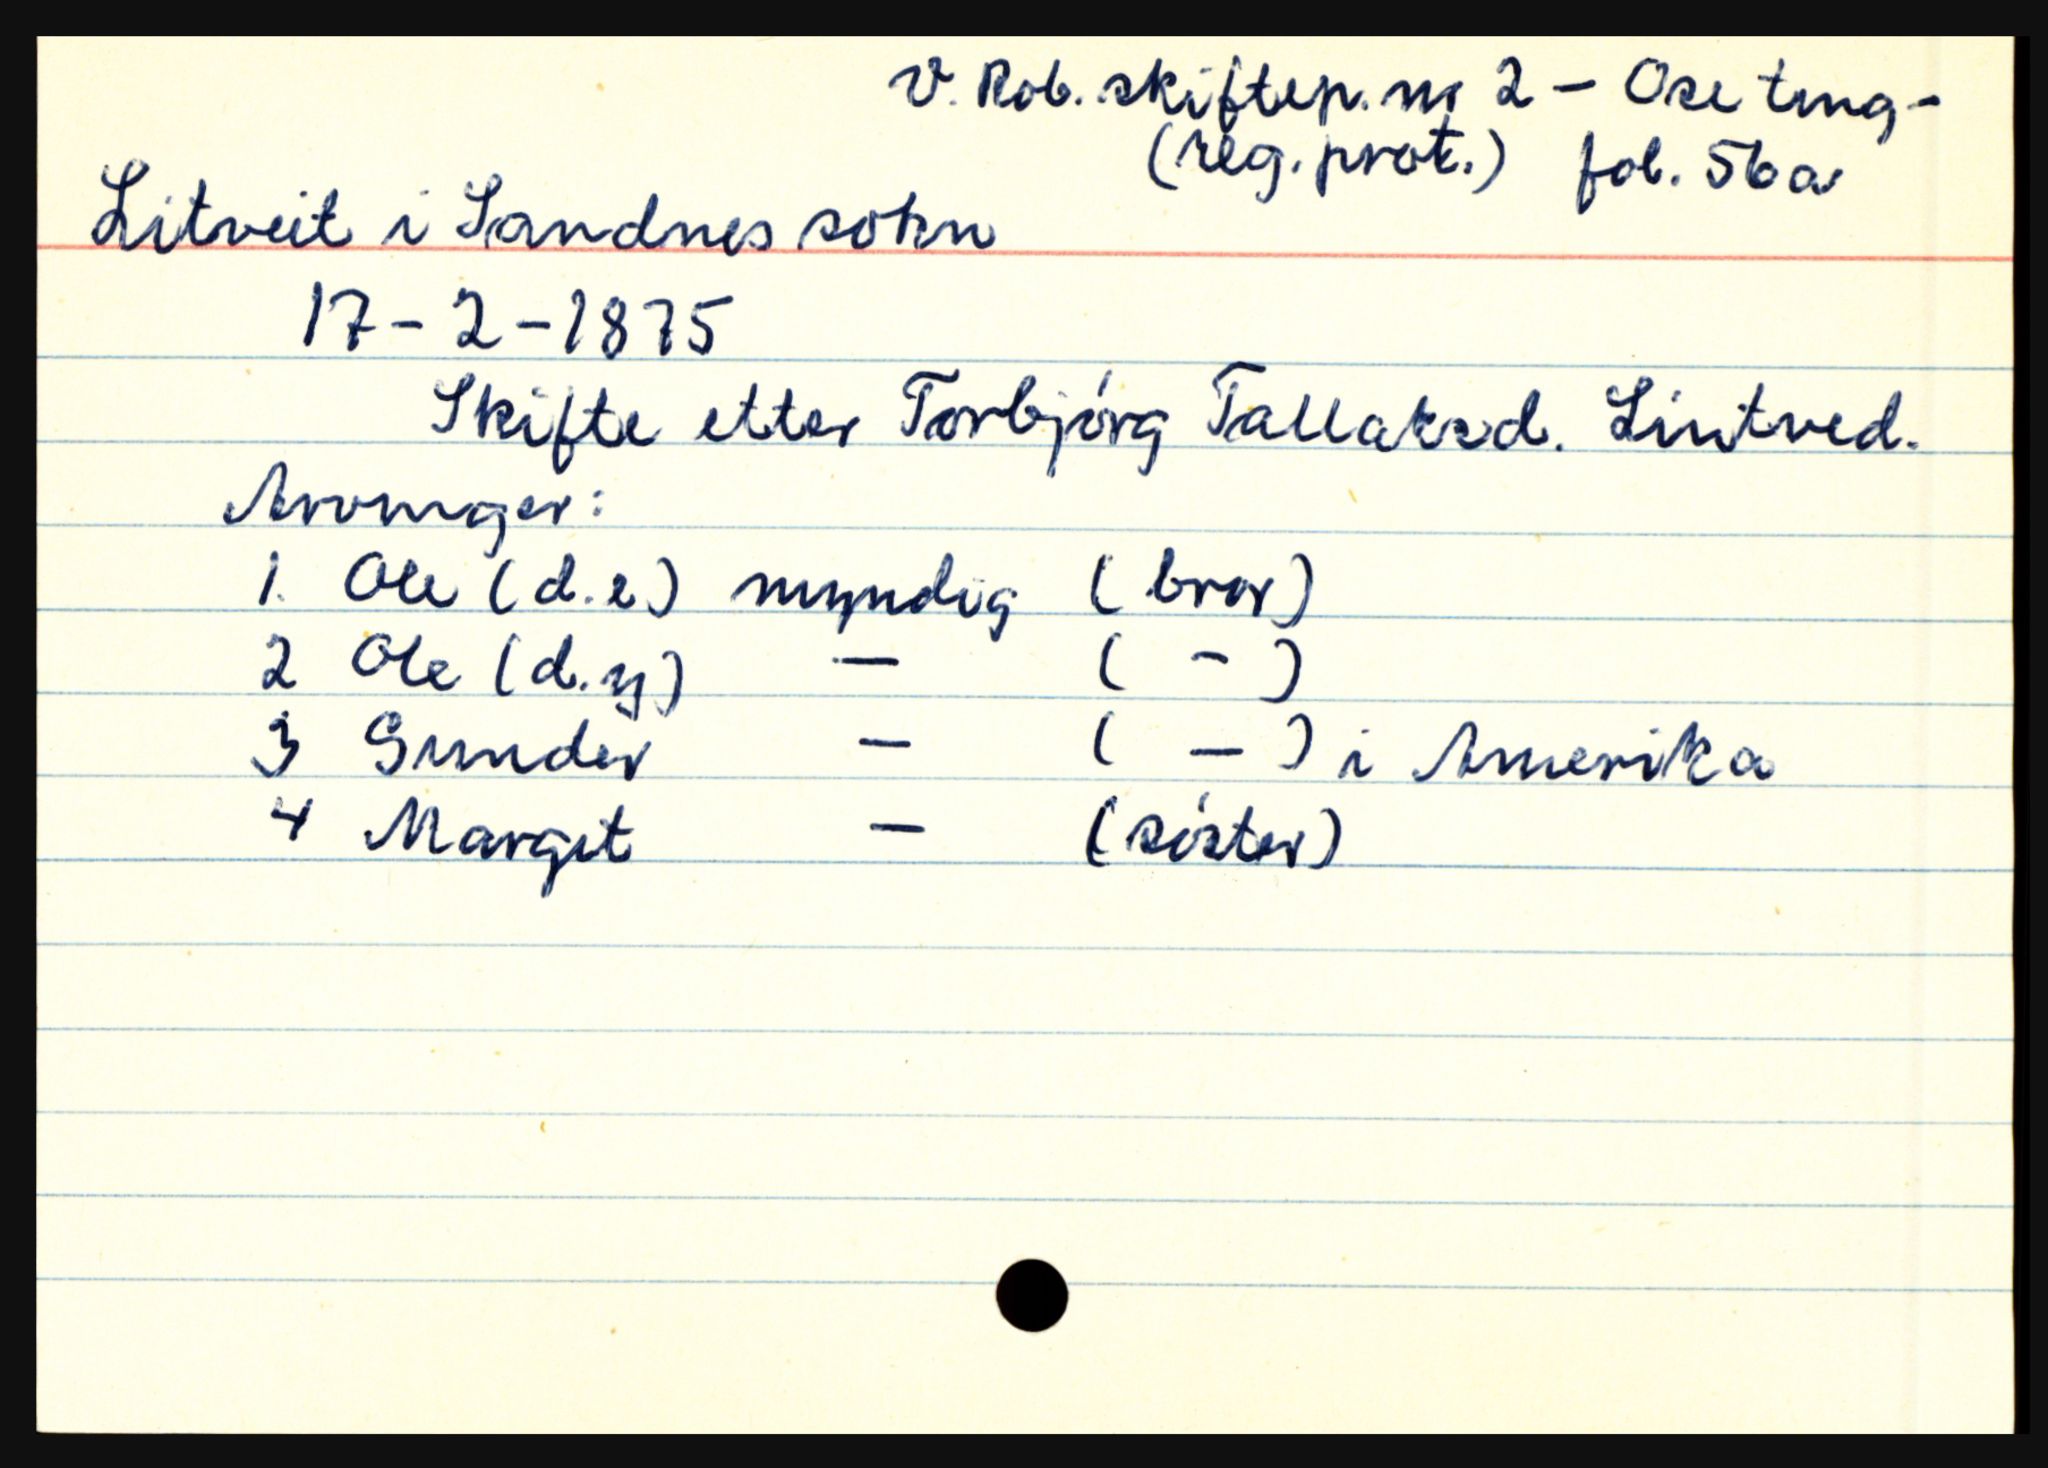 V. Rob. skiftep. nr 2 – Ose ting-
(reg. prot.) fol. 56a
Litveit i Sandnes sokn
17-2-1875
Skifte etter Torbjørg Tallaksd. Lintved.
Arvinger:
1. Ole (d.e) myndig (bror)
2 Ole (d.y) — ( - )
3 Gunder — ( — ) i Amerika
4 Margit — (søster)